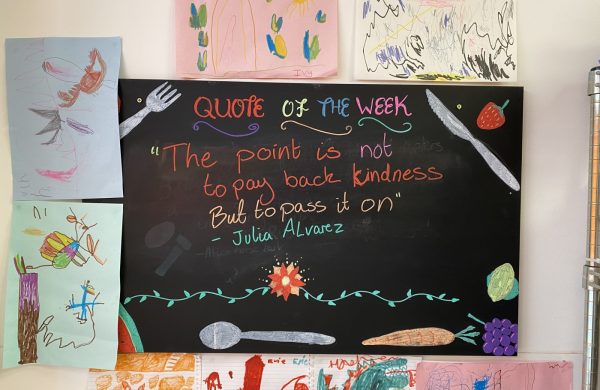 IVY
QUOTE OF THE WEEK
"The point is not
to pay back kindness
But to pass it on"
- Julia ALvarez